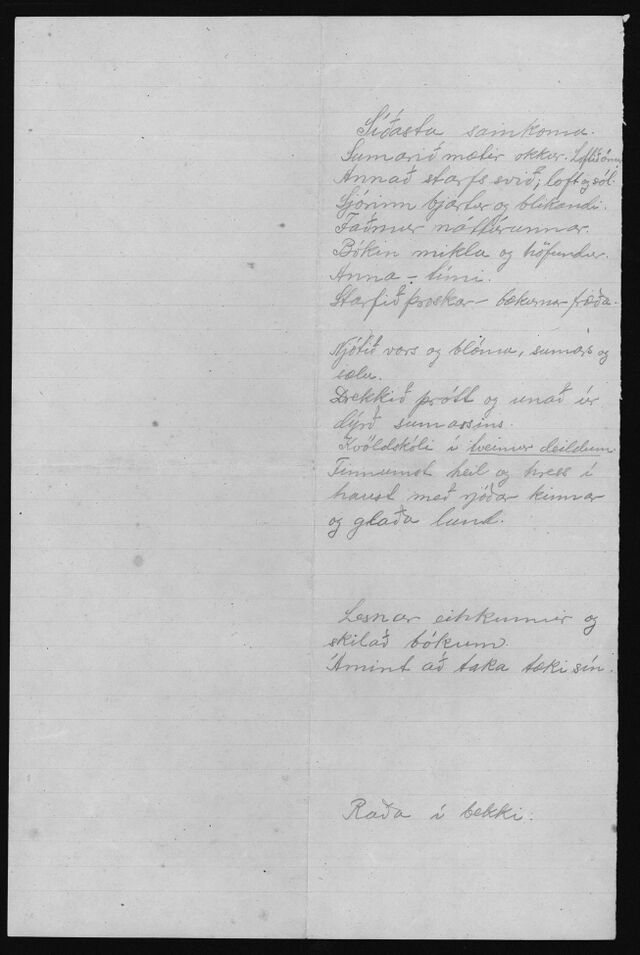 Síðasta samkoma.
Sumarið mætir okkur.
Annað starfssvið; loft og sól.
Sjórinn bjartur og blikandi.
Faðmur náttúrunnar.
Bókin mikla og höfundur.
Anna-tími.
Starfið þroskar - bækurnar fræða.
Njótið vors og blóma, sumars og
sælu.
Drekkið þrótt og unað úr
dýrð sumarsins.
Kvöldskóli í tveimur deildum.
Finnumst heil og hress í
haust með rjóðar kinnar
og glaða lund.
Lesnar einkunnir og
skilað bókum.
Ámint að taka tæki sín.
Raða í bekki.